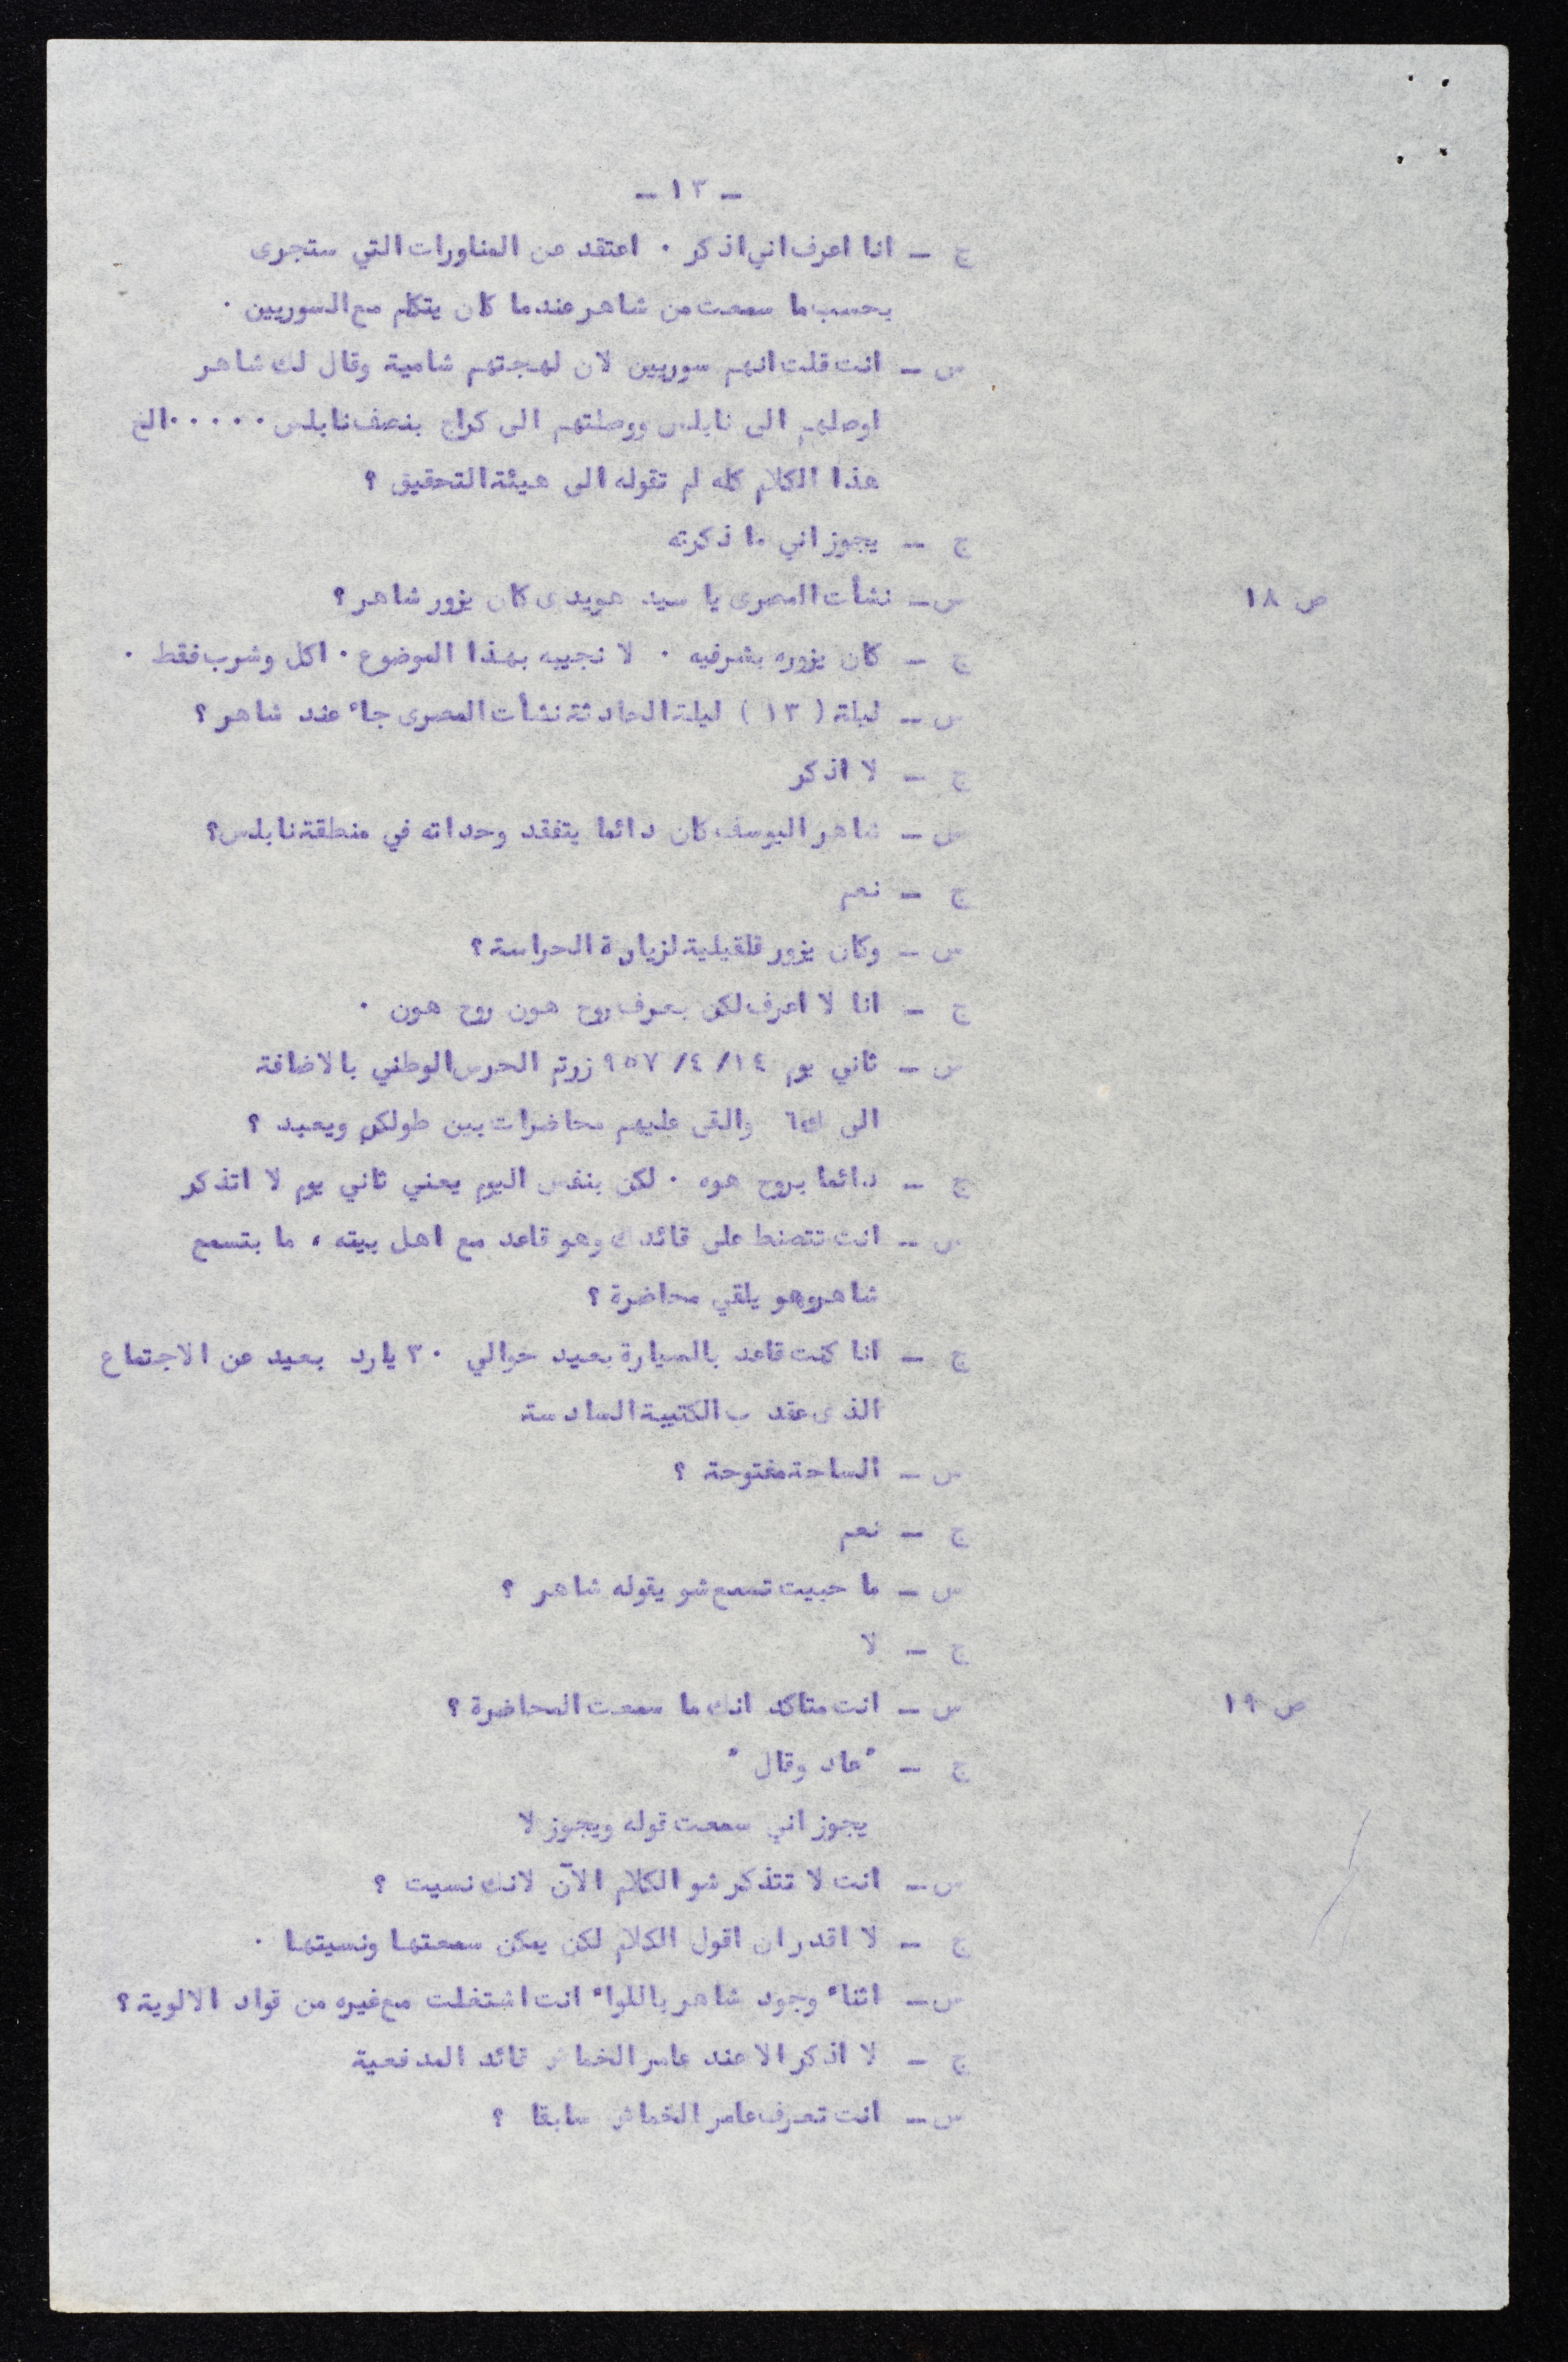 - ١٣ -
ج - انا اعرف اني اذكر . اعتقد عن المناورات التي ستجرى
بحسب ما سمعت من شاهر عندما كان يتكلم مع السوريين .
س - انت قلت انهم سوريين لان لهجتهم شامية وقال لك شاهر
اوصلهم الى نابلس ووصلتهم الى كراج بنصف نابلس ..... الخ
هذا الكلام كله لم تقوله الى هيئة التحقيق ؟
ج - يجوز اني ما ذكرته
ص ١٨ س - نشأت المصرى يا سيد هويدى كان يزور شاهر ؟
ج - كان يزوره بشرفيه . لا نجيبه بهذا الموضوع . اكل وشرب فقط .
س - ليلة ( ١٣ ) ليلة الحادثة نشأت المصرى جاء عند شاهر ؟
ج - لا اذكر
س - شاهر اليوسف كان دائما يتفقد وحداته في منطقة نابلس؟
ج - نعم
س - وكان يزور قلقيلية لزيارة الحراسة ؟
ج - انا لا اعرف لكن بعرف روح هون روح هون .
س - ثاني يوم ١٤ /٤ /٩٥٧ زرتم الحرس الوطني بالاضافة
الى ك٦ والقى عليهم محاضرات بين طولكرم ويعبد ؟
ج - دائما بروح هوه . لكن بنفس اليوم يعني ثاني يوم لا اتذكر
س - انت تتصنط على قائدك وهو قاعد مع اهل بيته ، ما بتسمع
شاهر وهو يلقي محاضرة ؟
ج - انا كنت قاعد بالسيارة بعيد حوالي ٣٠ يارد بعيد عن الاجتماع
الذى عقد ب الكتيبة السادسة
س - الساحة مفتوحة ؟
ج - نعم
س - ما حبيت تسمع شو يقوله شاهر ؟
ج - لا
ص ١٩ س - انت متاكد انك ما سمعت المحاضرة ؟
ج - " عاد وقال "
يجوز اني سمعت قوله ويجوز لا
س - انت لا تتذكر شو الكلام الآن لانك نسيت ؟
ج - لا اقدر ان اقول الكلام لكن يمكن سمعتها ونسيتها .
س - اثناء وجود شاهر باللواء انت اشتغلت مع غيره من قواد الالوية ؟
ج - لا اذكر الا عند عامر الخماش قائد المدفعية
س - انت تعرف عامر الخماش سابقا ؟